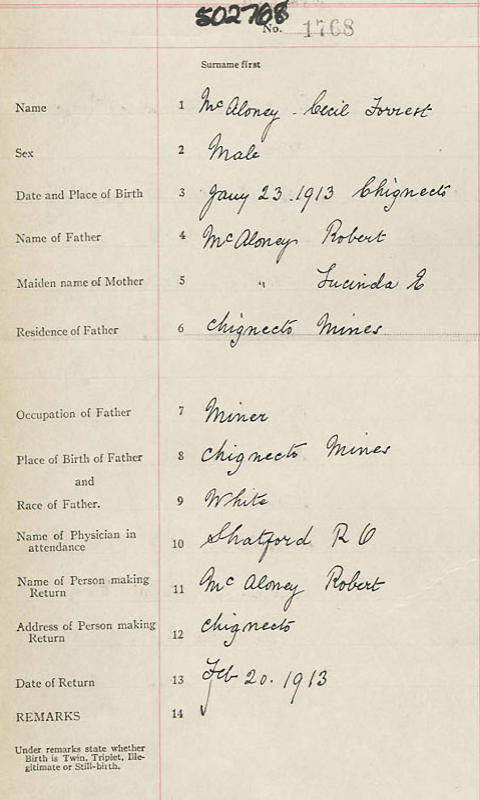 502768
No. 1768
Surname first
Name 1 McAloney - Cecil Forrest
Sex 2 Male
Date and Place of Birth 3 Jany 23. 1913 Chignecto
Name of Father 4 McAloney Robert
Maiden name of Mother 5 " Lucinda E
Residence of Father 6 Chignecto Mines
Occupation of Father 7 Miner
Place of Birth of Father 8 Chignecto Mines
and
Race of Father. 9 White
Name of Physician in
attendance 10 Shatford R O
Name of Person making
Return 11 McAloney Robert
Address of Person making
Return 12 Chignecto
Date of Return 13 Feb 20. 1913
REMARKS 14
Under remarks state whether
Birth is Twin, Triplet, Ille-
gitimate or Still-birth.